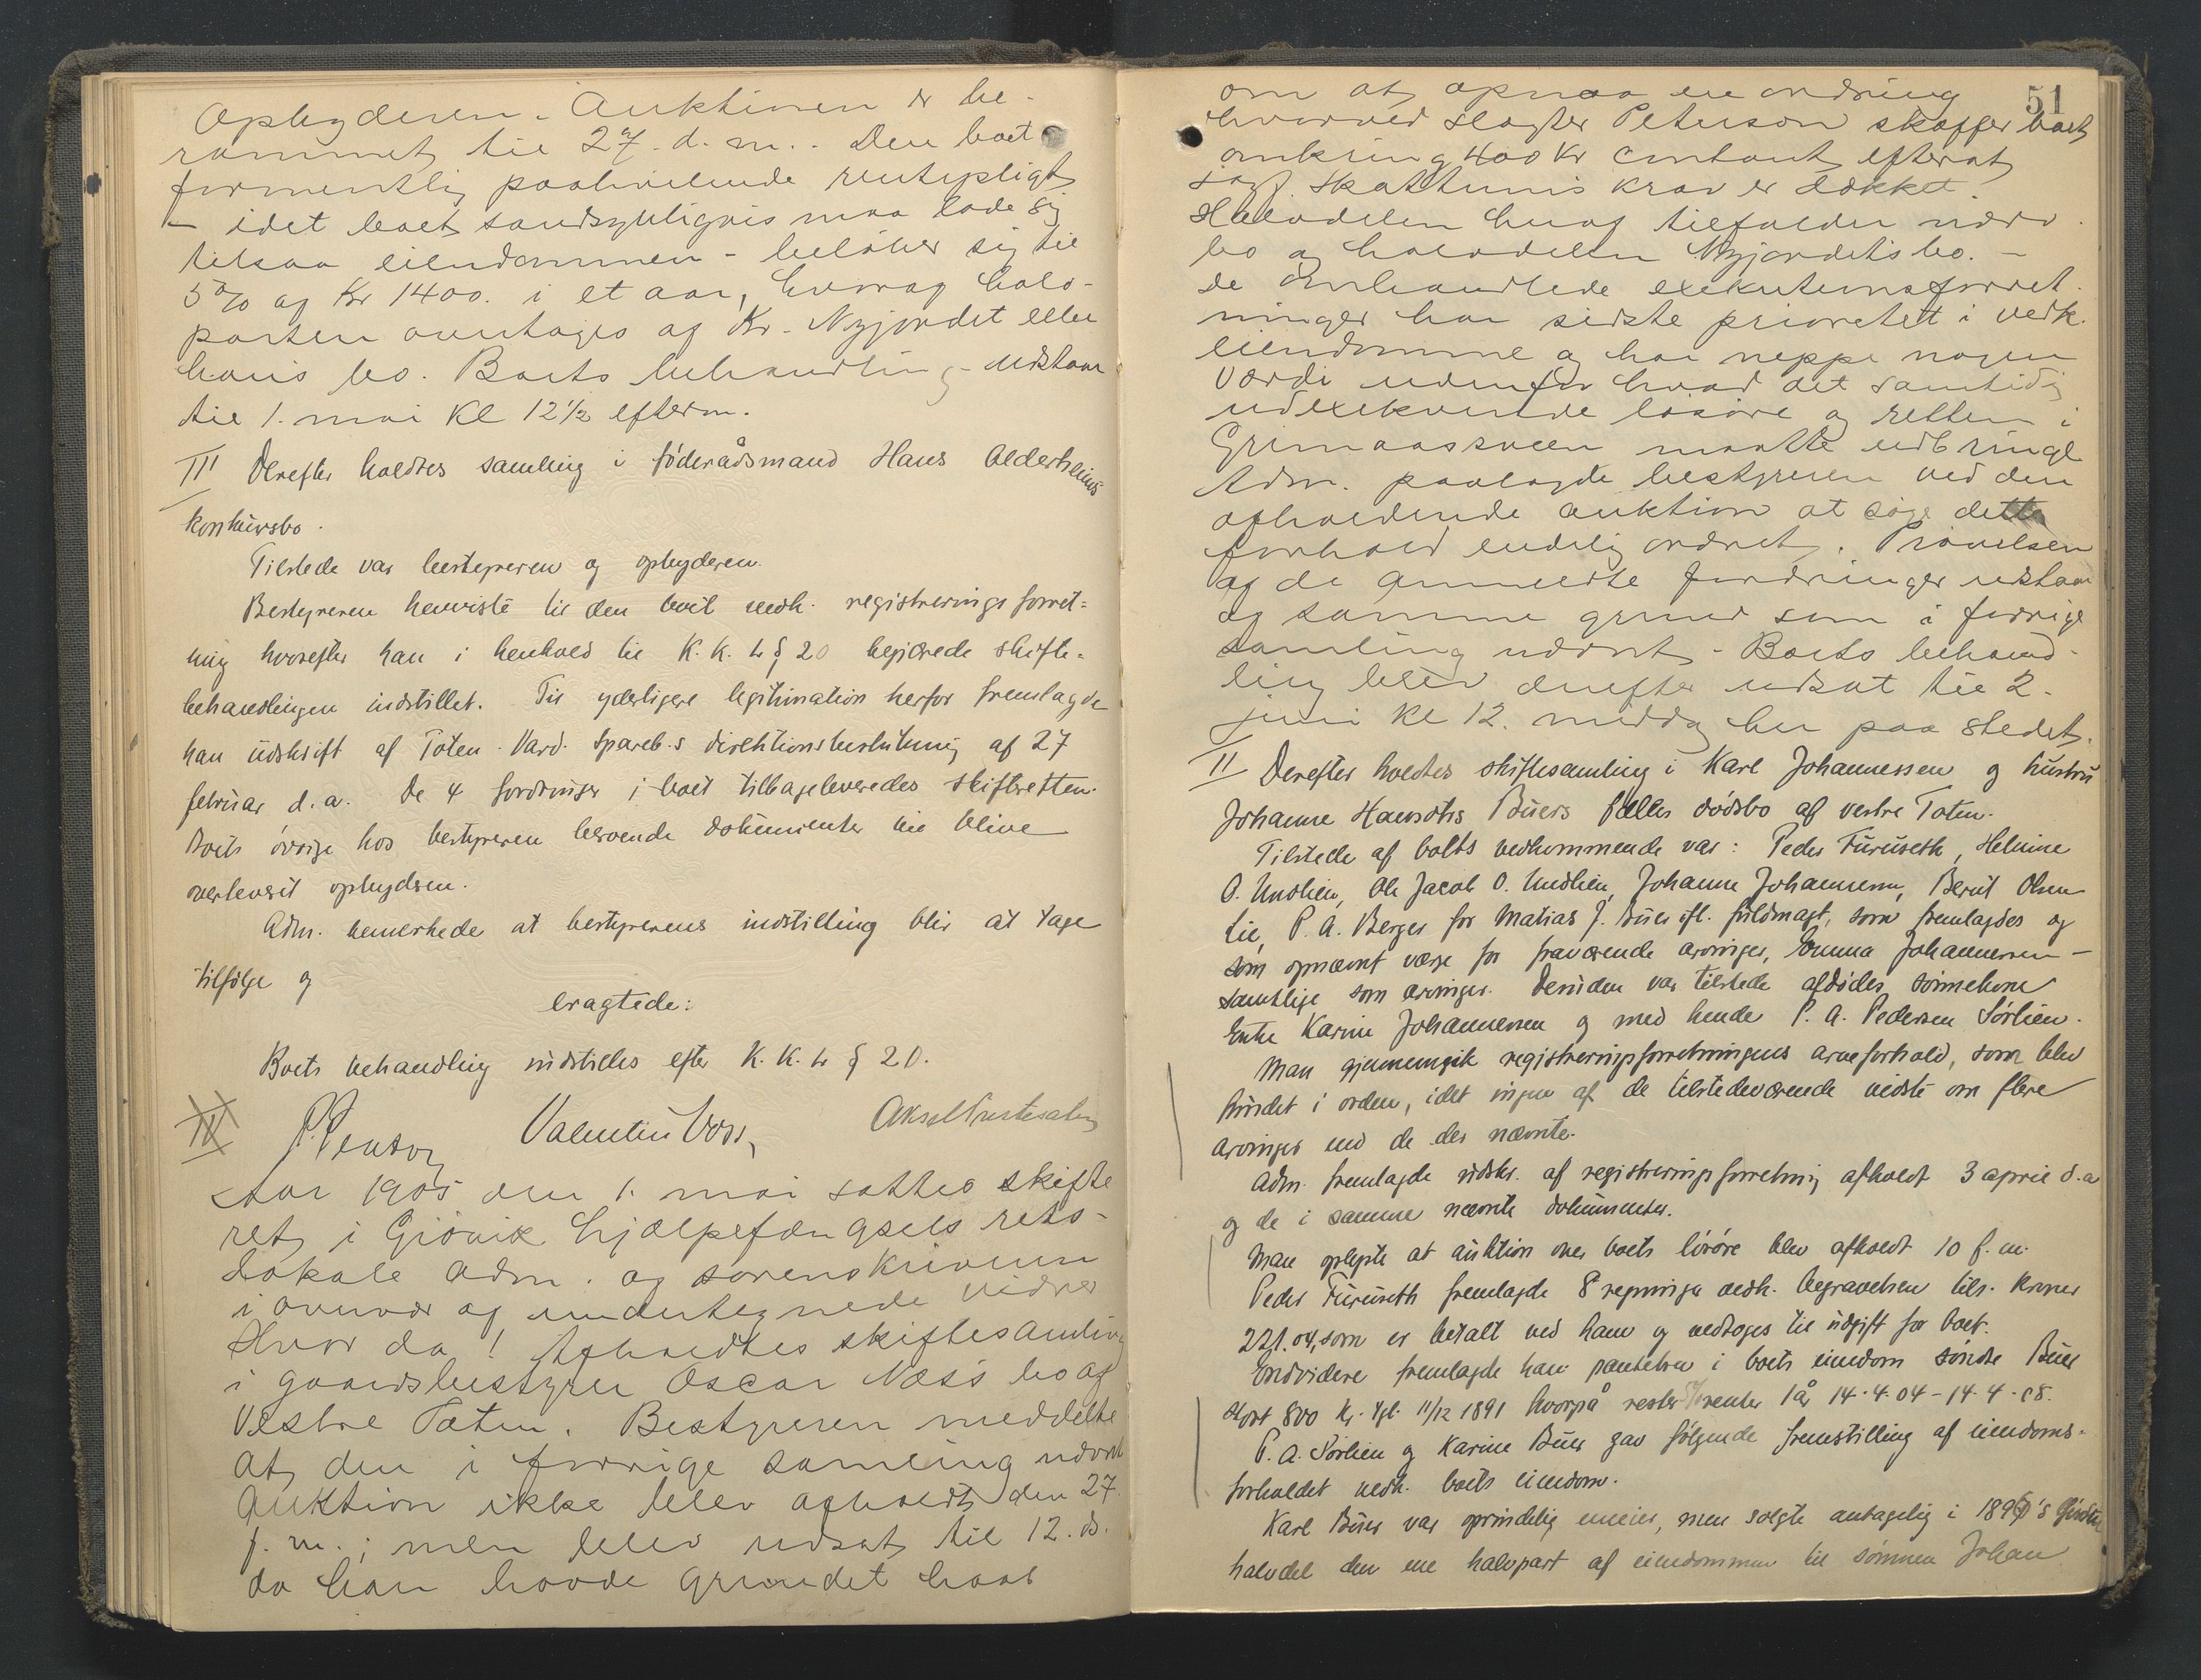 Opbyderen. Auktionen er be-
rammet til 27. d. m.. Den boet
formentlig paahvilende rentepligt
- idet boet sandsynligvis maa lade sig
tilsaa eiendommen - beløber sig til
5 % af Kr 1400. i et aar, hvorag halv-
parten overtages af Kr. Nyjordet eller
hans bo. Boets behandling udstaar
til 1. mai Kl 12 1/2 efterm.
III Derefter holdtes samling i føderådsmand Hans Alderheims
konkursbo.
Tilstede var bestyreren og opbyderen.
Bestyreren henviste til den boet vedk. registreringsforret=
ning hvorefter han i henhold til K. K. L § 20 begjærede skifte=
behandlingen indstillet. Til yderligere legitimation herfor fremlagde
han udskrift af Toten Vard. Spareb.s direktionsbeslutning af 27
februar d. a. De 4 fordringer i boet tilbageleveredes skifteretten.
Boets øvrige hos bestyreren beroende dokumenter vil blive
overleveret opbyderen.
Adm. bemerkede at bestyrerens indstilling blir at tage
tilfølge og
eragtede:
Boets behandling indstilles efter K. K. L § 20.
IV Valentin Voss,
Aar 1905 den 1. mai sattes skifte
ret i Gjøvik hjælpefængsels rets-
lokale adm. og sorenskriveren
i overvær af undertegnede vidner
Hvor da! Afholdtes skiftesamling
i gaardsbestyrer Oscar Næss bo af
Vestre Toten. Bestyreren meddelte
at den i forrige samling nævnte
auktion ikke blev afholdt den 27
f. m.; men blev udsat til 12. ds.
da han havde grundet haab
51
om at opnaa en ordning
hvorved slagter Peterson skaffer boet
omkring 400 Kr contant efterat
sagf. Skattums krav er dækket
Halvdelen heraf tilfalder nærv.
bo og halvdelen Nyjordets bo. -
De omhandlede exekutionsforret-
ninger har sidste prioritet i vedk.
eiendomme og har neppe nogen
værdi udenfor hvad det samtidig
udexekverede løsøre og retten i
Grimaassveen maatte udbringe
Adm. paalagde bestyreren ved den
afholdende auktion at søge dette
forhold endelig ordnet. Prøvelsen
af de anmeldte fordringer udstaar
af samme grund som i forrige
samling nævnt. Boets behand-
ling blev derefter udsat til 2.
juni Kl 12. middag her paa stedet.
II Derefter holdtes skiftesamling i Karl Johannessen og hustru
Johanne Hansdtrs Buers fælles dødsbo af vestre Toten.
Tilstede af boets vedkommende var: Peder Furuseth, Helmine
O. Undlien, Ole Jacob O. Undlien, Johanne Johannessen, Berit Olsen
Lie, P. A. Berger for Matias J. Buer ifl. fuldmagt, som fremlagdes og
som opnævnt værge for fraværende arvinger, Emma Johannessen -
samtlige som arvinger. Desuden var tilstede afdødes sønnekone
Enke Karine Johannessen og med hende P. A. Pedersen Sørlien.
Man gjennemgik registreringsforretningens arveforhold, som blev
fundet i orden, idet ingen af de tilstedeværende vidste om flere
arvinger end de der nævnte.
Adm. fremlagde udskr. af registreringsforretning afholdt 3 april d. a
og de i samme nævnte dokumenter.
Man oplyste at auktion over boets løsøre blev afholdt 10 f. m.
Peder Furuseth fremlagde 8 regninger vedk. begravelsen tils. kroner
221.04, som er betalt ved ham og vedtoges til udgift for boet.
Endvidere fremlagde han pantebrev i boets eiendom søndre Buer
stort 800 kr. tgl. 11/12 1891 hvorpå rester renter 1 år 14.4.04 - 14.4.05.
P. A. Sørlien og Karine Buer gav følgende fremstilling af eiendoms-
forholdet vedk. boets eiendom.
Karl Buer var oprindelig eneeier, men solgte antagelig i 1890's første
halvdel den ene halvpart af eiendommen til sønnen Johan